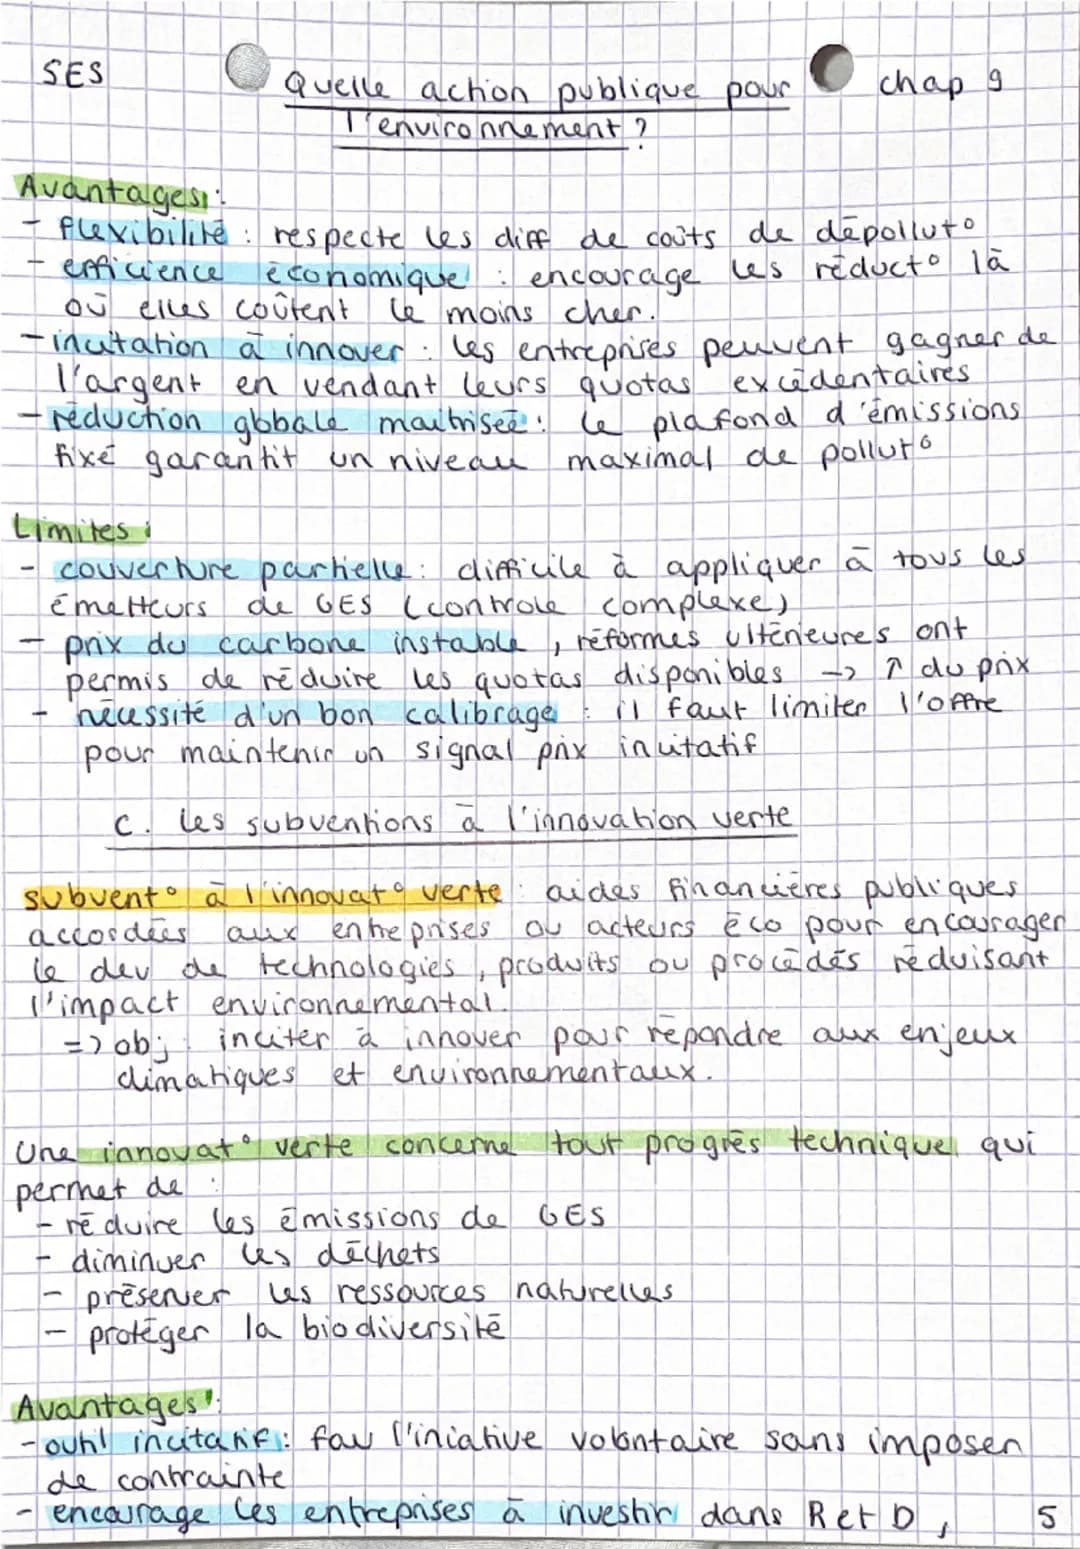 SES
Quelle action publique pour
l'environnement ?
chap 9
Avantages :
- flexibilité : respecte les diff de coûts de dépollut°
- efficience économique : encourage les réduct° là
où elles coûtent le moins cher.
- incitation à innover : les entreprises peuvent gagner de
l'argent en vendant leurs quotas excédentaires
- réduction globale maitrisée : le plafond d'émissions
fixé garantit un niveau maximal de pollut°
Limites :
- couverture partielle : difficile à appliquer à tous les
émetteurs de GES (controle complexe)
- prix du carbone instable, réformes ultérieures ont
permis de réduire les quotas disponibles -> ↑ du prix
- nécessité d'un bon calibrage : il faut limiter l'offre
pour maintenir un signal prix incitatif
c. les subventions à l'innovation verte
subvent° à l'innovat° verte : aides financières publiques
accordées aux entreprises ou acteurs éco pour encourager
le dev de technologies, produits ou procédés réduisant
l'impact environnemental.
=> obj : inciter à innover pour répondre aux enjeux
climatiques et environnementaux.
Une innovat° verte concerne tout progrès technique qui
permet de :
- réduire les émissions de GES
- diminuer les déchets
- préserver les ressources naturelles
- protéger la biodiversité
Avantages :
- outil incitatif : fav l'iniative volontaire sans imposer
de contrainte
- encourage les entreprises à investir dans R et D,
5